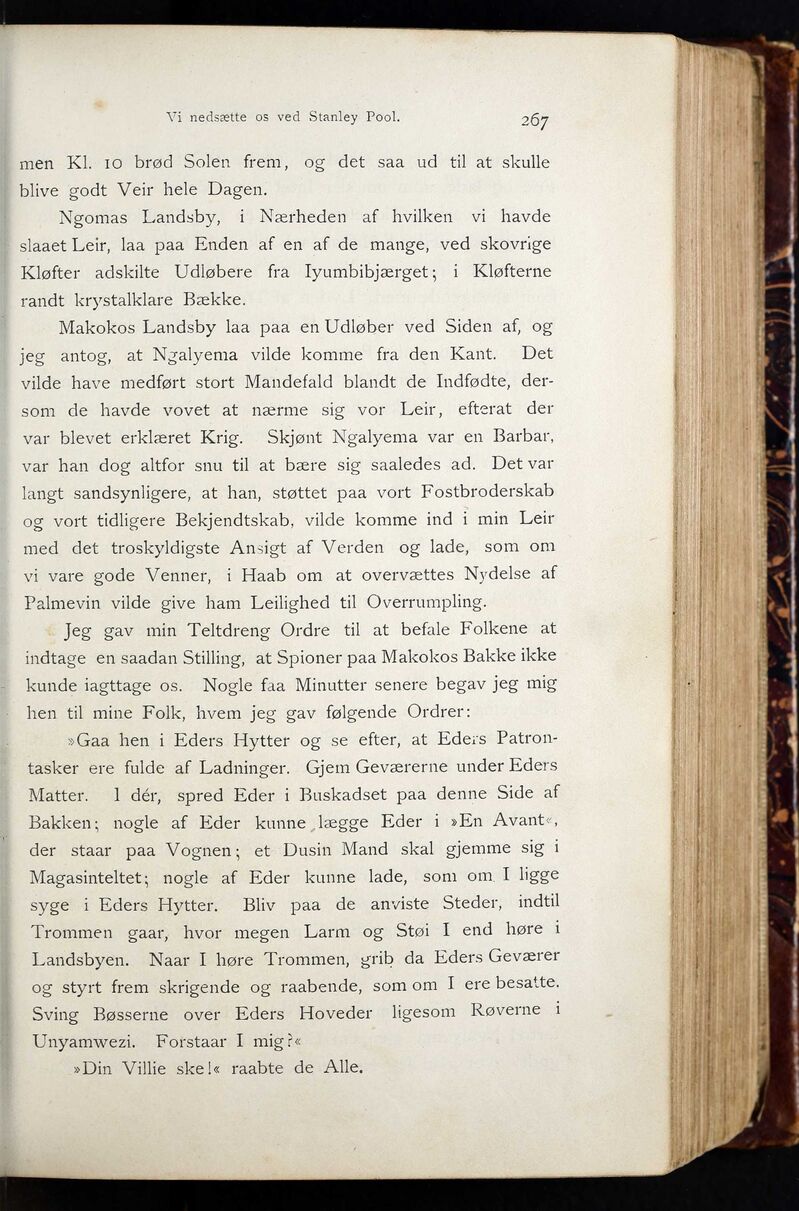 Vi nedsætte os ved Stanley Pool. 267
men Kl. 10 brød Solen frem, og det saa ud til at skulle
blive godt Veir hele Dagen.
Ngomas Landsby, i Nærheden af hvilken vi havde
slaaet Leir, laa paa Enden af en af de mange, ved skovrige
Kløfter adskilte Udløbere fra Iyumbibjærget; i Kløfterne
randt krystalklare Bække.
Makokos Landsby laa paa en Udløber ved Siden af, og
jeg antog, at Ngalyema vilde komme fra den Kant. Det
vilde have medført stort Mandefald blandt de Indfødte, der-
som de havde vovet at nærme sig vor Leir, efterat der
var blevet erklæret Krig. Skjønt Ngalyema var en Barbar,
var han dog altfor snu til at bære sig saaledes ad. Det var
langt sandsynligere, at han, støttet paa vort Fostbroderskab
og vort tidligere Bekjendtskab, vilde komme ind i min Leir
med det troskyldigste Ansigt af Verden og lade, som om
vi vare gode Venner, i Haab om at overvættes Nydelse af
Palmevin vilde give ham Leilighed til Overrumpling.
Jeg gav min Teltdreng Ordre til at befale Folkene at
indtage en saadan Stilling, at Spioner paa Makokos Bakke ikke
kunde iagttage os. Nogle faa Minutter senere begav jeg mig
hen til mine Folk, hvem jeg gav følgende Ordrer:
»Gaa hen i Eders Hytter og se efter, at Eders Patron-
tasker ere fulde af Ladninger. Gjem Geværerne under Eders
Matter. I dér, spred Eder i Buskadset paa denne Side af
Bakken; nogle af Eder kunne lægge Eder i »En Avant«,
der staar paa Vognen; et Dusin Mand skal gjemme sig i
Magasinteltet; nogle af Eder kunne lade, som om I ligge
syge i Eders Hytter. Bliv paa de anviste Steder, indtil
Trommen gaar, hvor megen Larm og Støi I end høre i
Landsbyen. Naar I høre Trommen, grib da Eders Geværer
og styrt frem skrigende og raabende, som om I ere besatte.
Sving Bøsserne over Eders Hoveder ligesom Røverne i
Unyamwezi. Forstaar I mig?«
»Din Villie ske!« raabte de Alle.